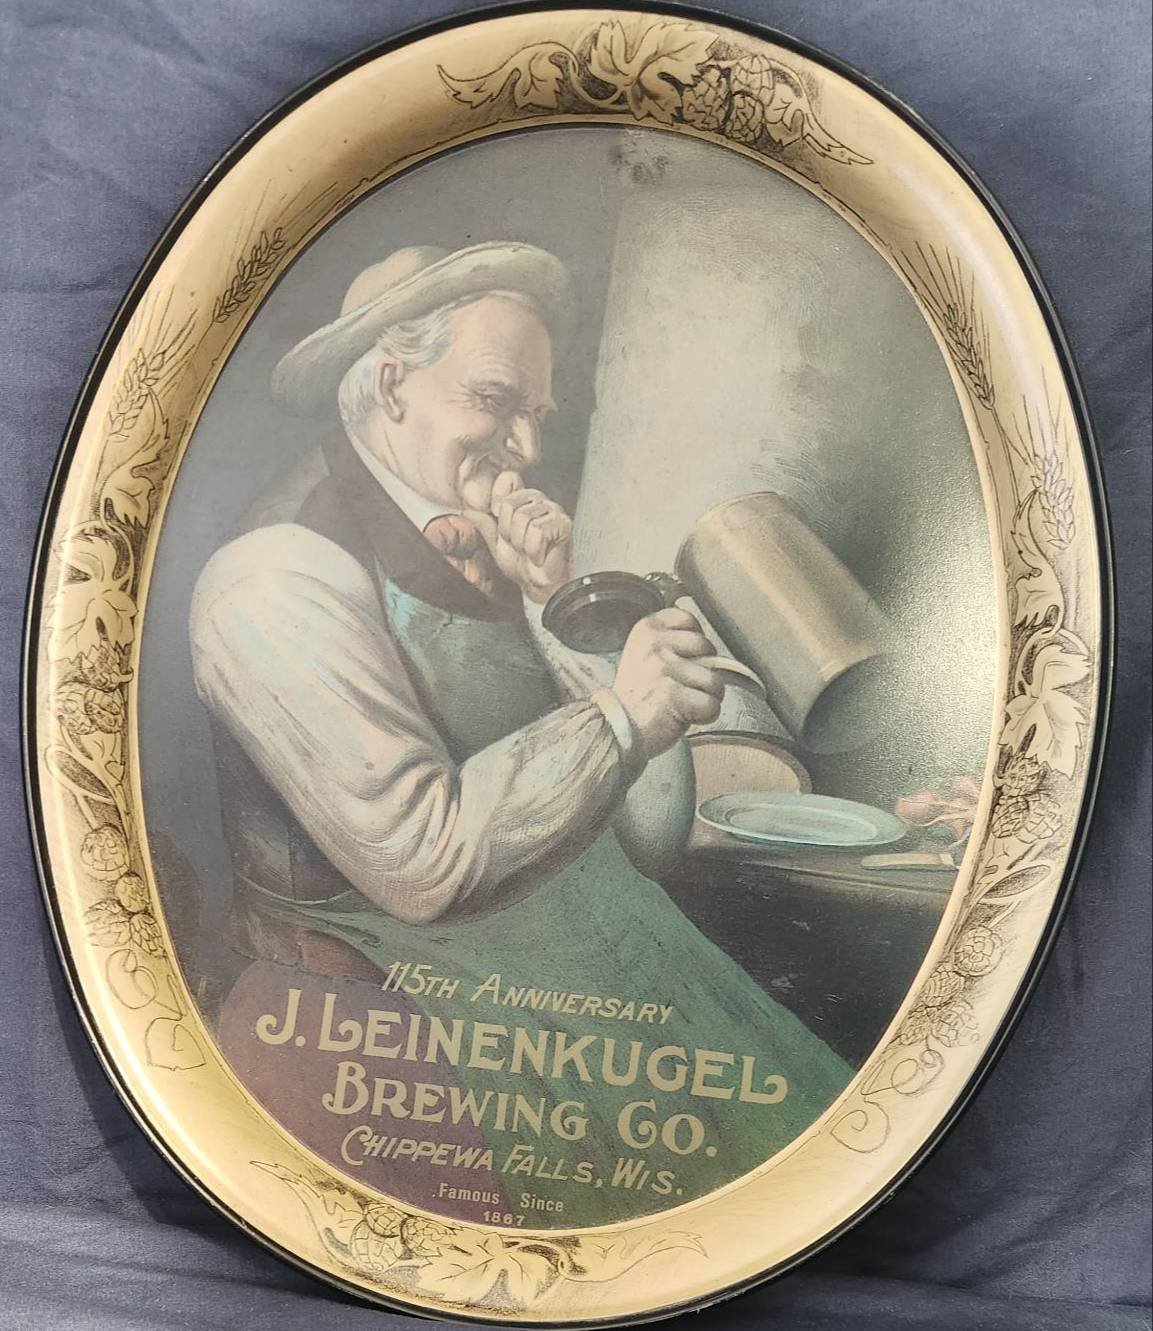 115TH ANNIVERSARY
J. LEINENKUGEL
BREWING CO.
CHIPPEWA FALLS, WIS.
Famous Since
1867